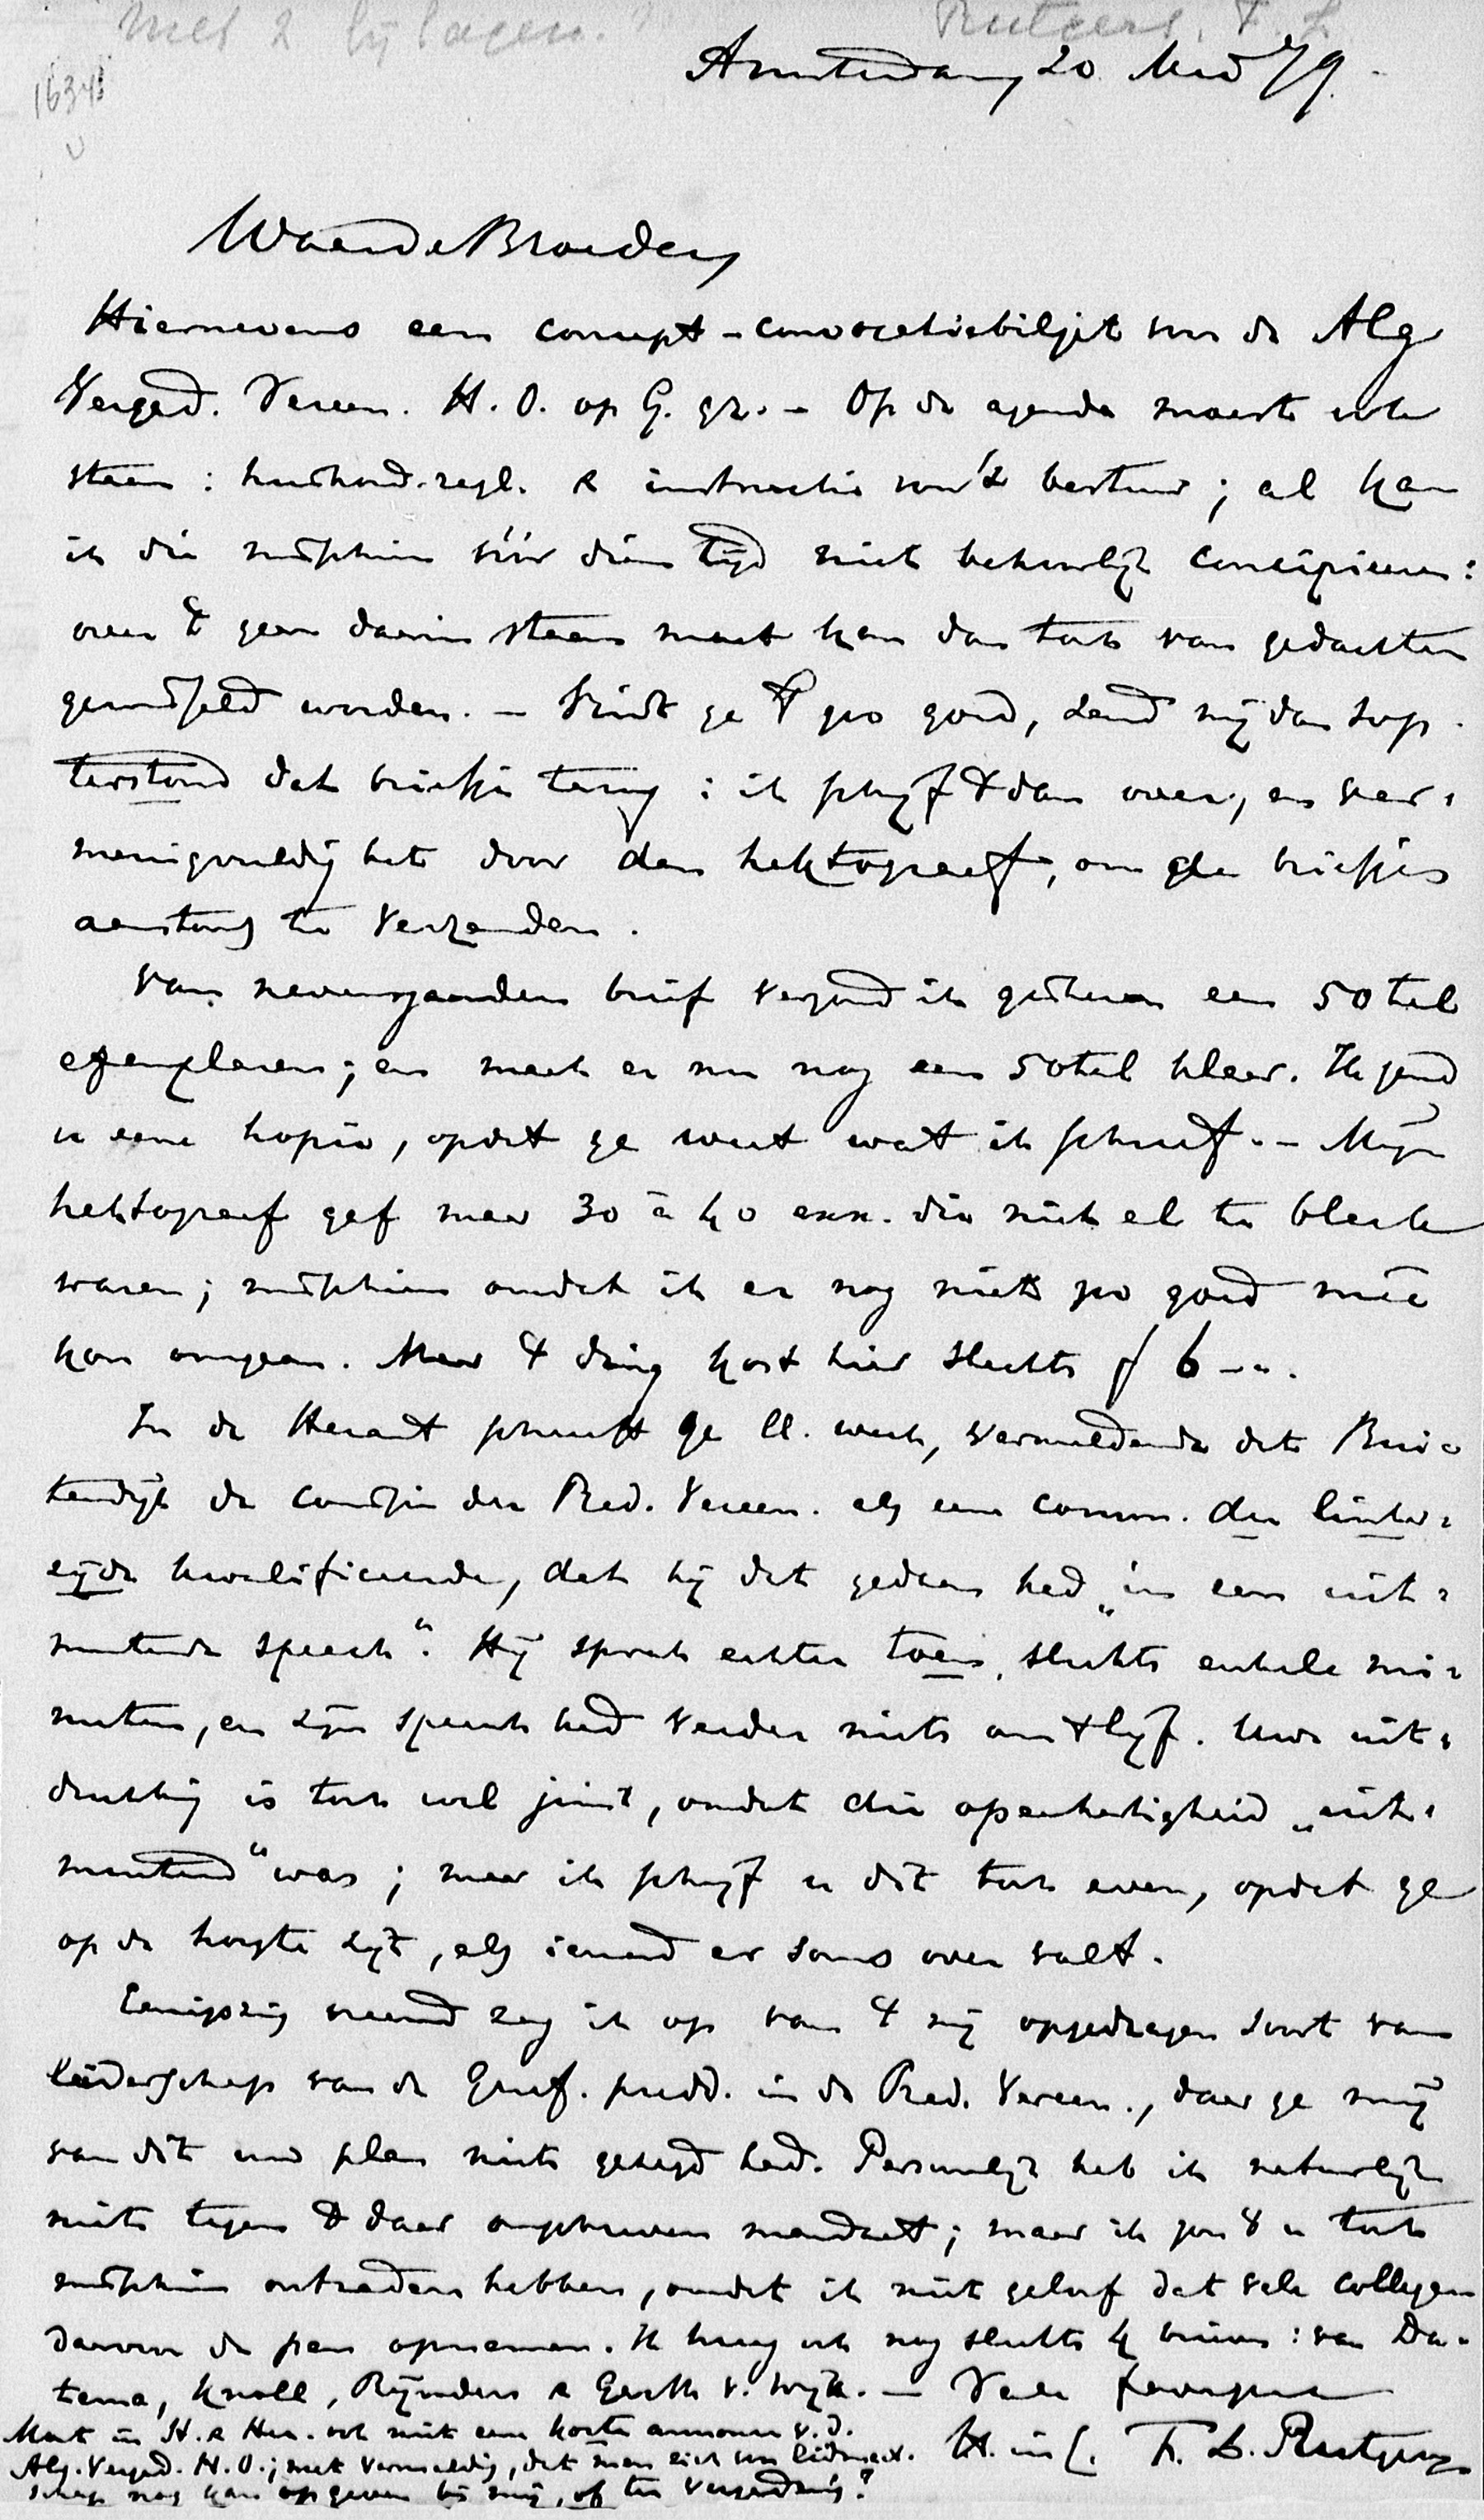 met 2 bijlagen. Rutgers, F. L.
Amsterdam, 20 Mei 79.
1634
Waarde Broeder,
Hiernevens een concept-convocatiebiljet voor de Alg
Vergad. Vereen. H. O. op G. gr. – Op de agenda moest ook
staan: huishoud. regl. & instructie voor 't bestuur; al kan
ik die misschien vóór dien tijd niet behoorlijk concipieeren:
over 't geen daarin staan moet kan dan toch van gedachten
gewisseld worden. – Vindt ge 't zoo goed, zend mij dan svp.
terstond dat briefje terug: ik schrijf 't dan over, en ver-
menigvuldig het door den hektograaf, om de briefjes
aanstonds te verzenden.
Van nevensgaanden brief verzond ik gisteren een 50tal
exemplaren; en maak er nu nog een 50tal klaar. Ik zend
u eene kopie, opdat ge weet wat ik schreef. – Mijn
hektograaf gaf maar 30 à 40 exx. die niet al te bleek
waren; misschien omdat ik er nog niet zoo goed mee
kon omgaan. Maar 't ding kost hier slechts f 6 –.
In de Heraut schreeft ge ll. week, vermeldende dat Bui-
tendijk de conditie der Pred. Vereen. als eene comm. der linker-
zijde kwalificeerde, dat hij dat gedaan had „in een uit-
muntende speech". Hij sprak echter toen slechts enkele mi-
nuten, en zijn speech had verder niets om 't lijf. Uwe uit-
drukking is toch wel juist, omdat die openhartigheid „uit-
muntend" was; maar ik schrijf u dit toch even, opdat ge
op de hoogte zijt, als iemand er soms over valt.
Eenigszins vreemd zag ik op van 't mij opgedragen soort van
leiderschap van de Geref. predd. in de Pred. Vereen., daar ge mij
van dit uw plan niets gezegd had. Persoonlijk heb ik natuurlijk
niets tegen 't daar omschreven mandaat; maar ik zou 't u toch
misschien ontraden hebben, omdat ik niet geloof dat vele collegen
daarvoor de pen opnemen. Ik kreeg ook nog slechts 4 brieven: van Da-
tema, Knoll, Rijnders & Gerth v. Wijk. – Vale faveque
H. in C. F. L. Rutgers
Moet in St. & Her. ook niet eene korte annonce v. d.
Alg. Vergad. H. O.; met vermelding, dat men zich voor lidmaat-
schap nog kan opgeven bij mij, of ter vergadering?